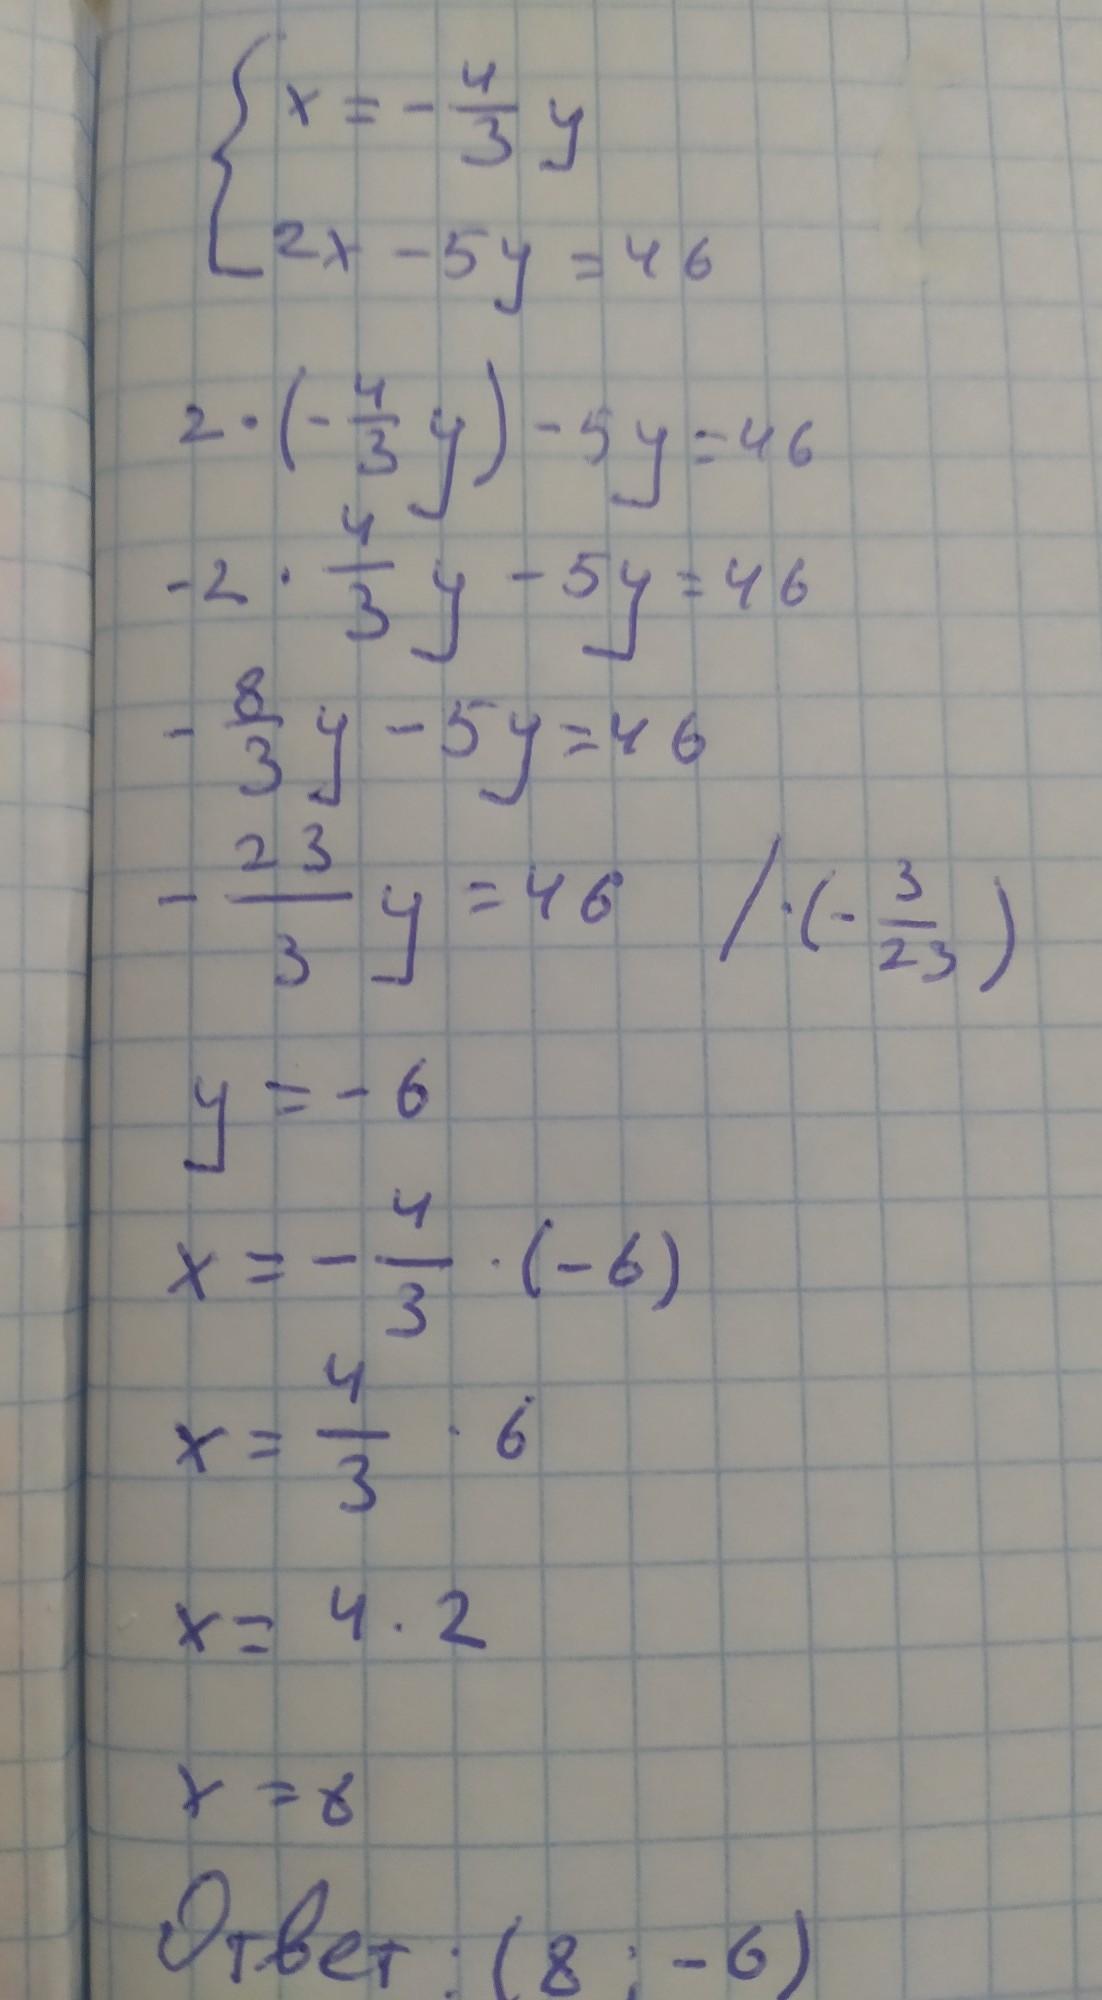 { x = - 4/3 y
2x - 5y = 46
2 · (- 4/3 y) - 5y = 46
-2 · 4/3 y - 5y = 46
- 8/3 y - 5y = 46
- 23/3 y = 46 / · (- 3/23)
y = - 6
x = - 4/3 · (- 6)
x = 4/3 · 6
x = 4 · 2
x = 8
Ответ: (8 ; - 6)